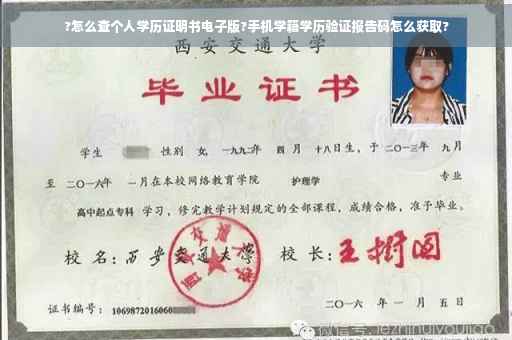 ?怎么查个人学历证明书电子版?手机学籍学历验证报告码怎么获取?
西安交通大学
毕业证书
学生 性别 女, 一九九二年 四月 十八日生, 于 二〇一三年 九月
至 二〇一六年 一月在本校网络教育学院 护理学 专业
高中起点专科 学习, 修完教学计划规定的全部课程, 成绩合格, 准予毕业。
校 名: 西安交通大学 校 长: 王树国
西安交通大学
证书编号: 1069872016060
二〇一六 年 一 月 五 日
微信号: jezhinuiyoujiao